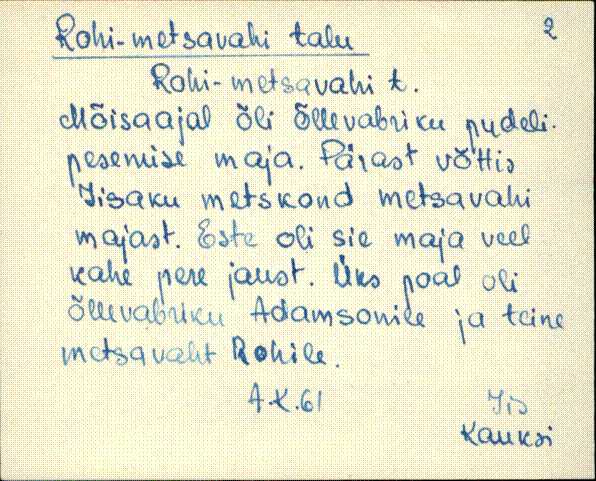 Rohi-metsavahi talu 2
Rohi-metsavahi t.
Mõisaajal õli õllevabriku pudeli-
pesemise maja. Pärast võttis
Iisaku metskond metsavahi
majast. Este oli sie maja veel
kahe pere jaust. Üks poal oli
õllevabriku Adamsonile ja teine
metsavaht Rohile.
A.K.61 Iis
Kauksi